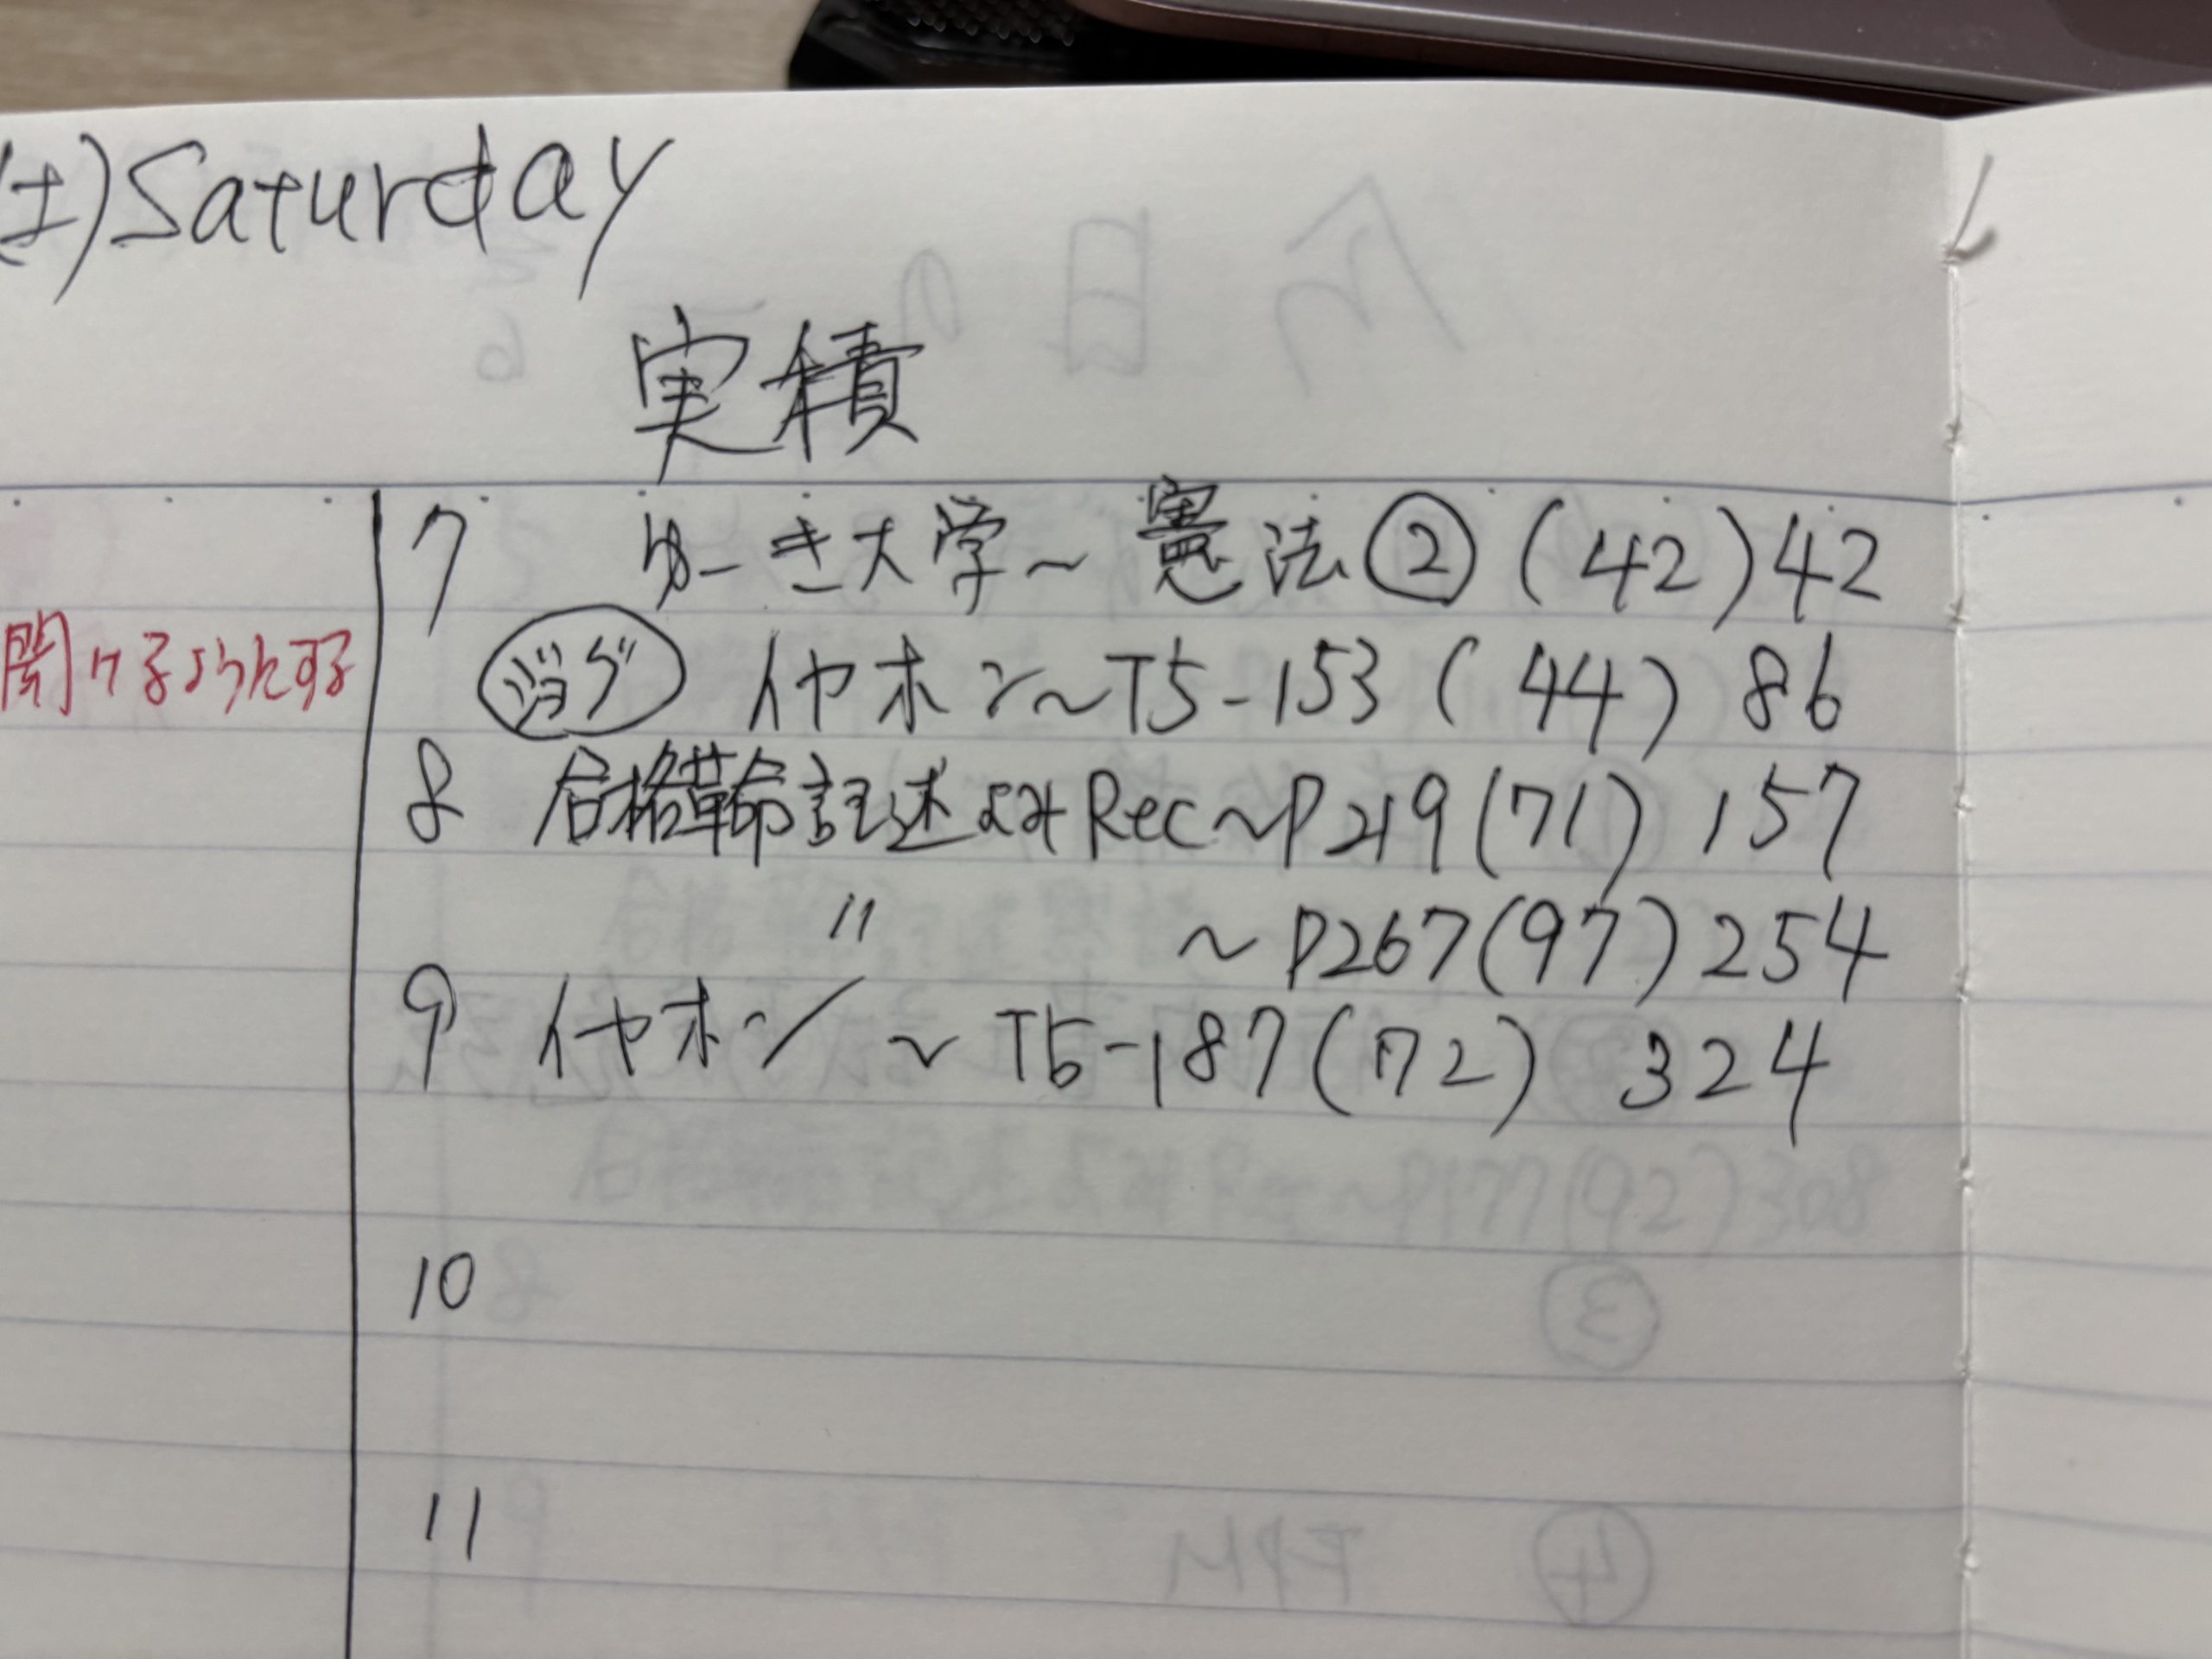 (土)Saturday
実積
7 ゆーき大学~憲法② (42)42
聞けるようにする
ジョグ イヤホン~T5-153(44) 86
8 合格革命記述 Rec~P219(71) 157
〃 ~P267(97)254
9 イヤホン ~T5-187(72) 324
10
11